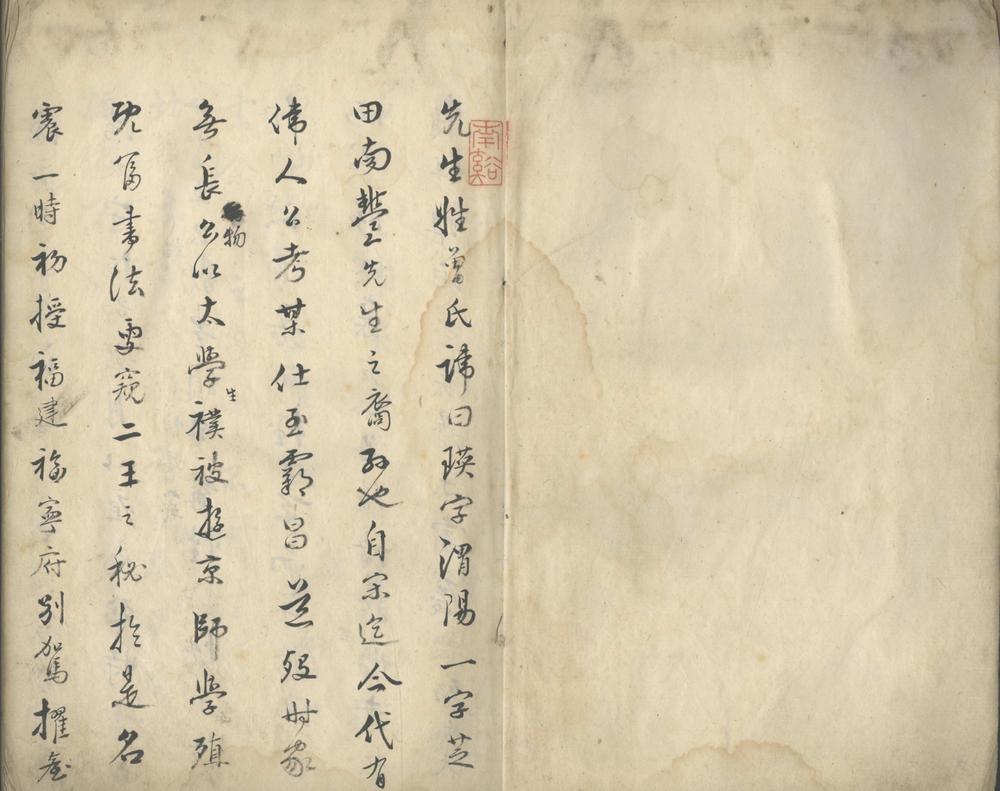 先生姓曾氏諱曰瑛字渭陽一字芝
田南豐先生之裔孫也自宋迄今代有
偉人公考某仕至霸昌道歿時家
無長物公以太學生襆被遊京師學殖
既富書法更窺二王之秘於是名
震一時初授福建福寧府別駕擢
南谿